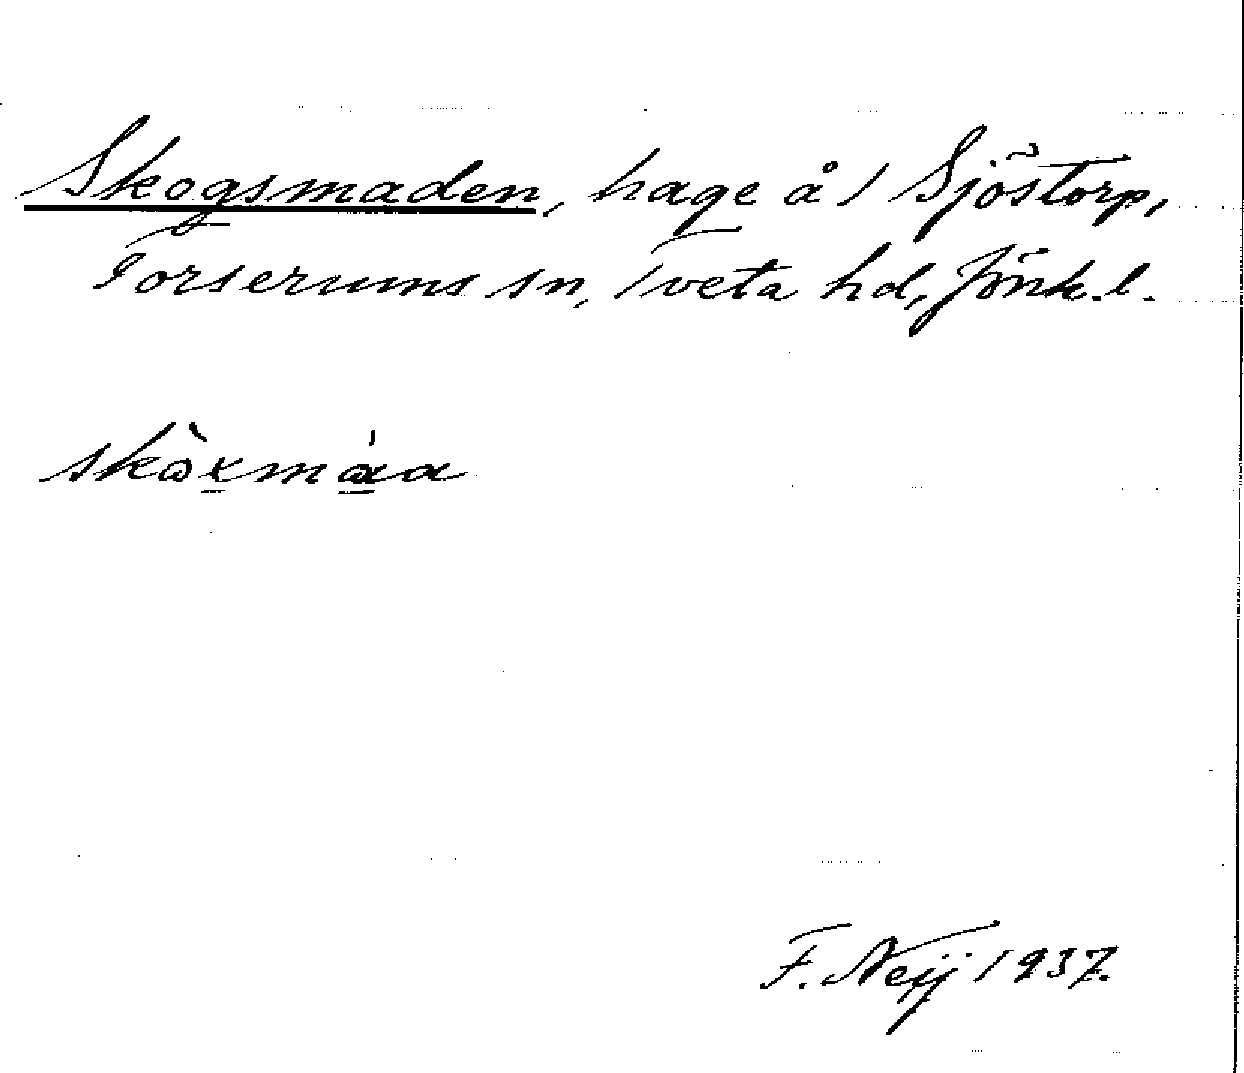 Skogsmaden, hage å 1 Sjöstorp,
Forserums sn, Tveta hd, Jönk.l.
F. Neij 1937.